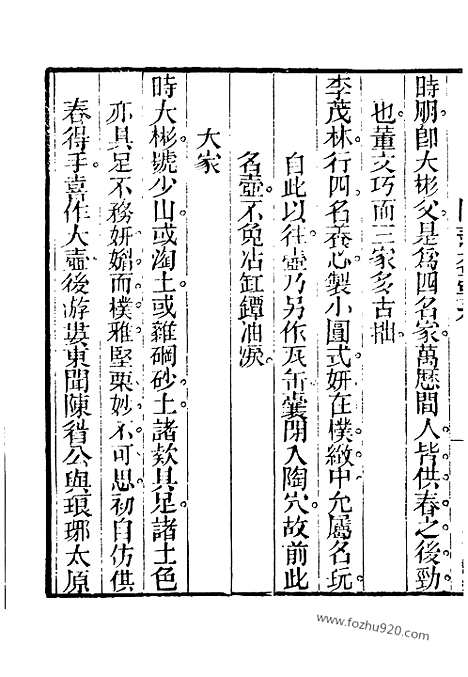 時朋卽大彬父是爲四名家萬曆間人皆供春之後勁
也董文巧而三家多古拙
李茂林行四名養心製小圓式妍在樸緻中允屬名玩
自此以往壺乃另作瓦缶囊閉入陶穴故前此
名壺不免沾缸罈油淚
大家
時大彬號少山或淘土或雜碙砂土諸款具足諸土色
亦具足不務妍媚而樸雅堅栗妙不可思初自仿供
春得手喜作大壺後游婁東聞陳眉公與琅琊太原
www.fozhu920.com